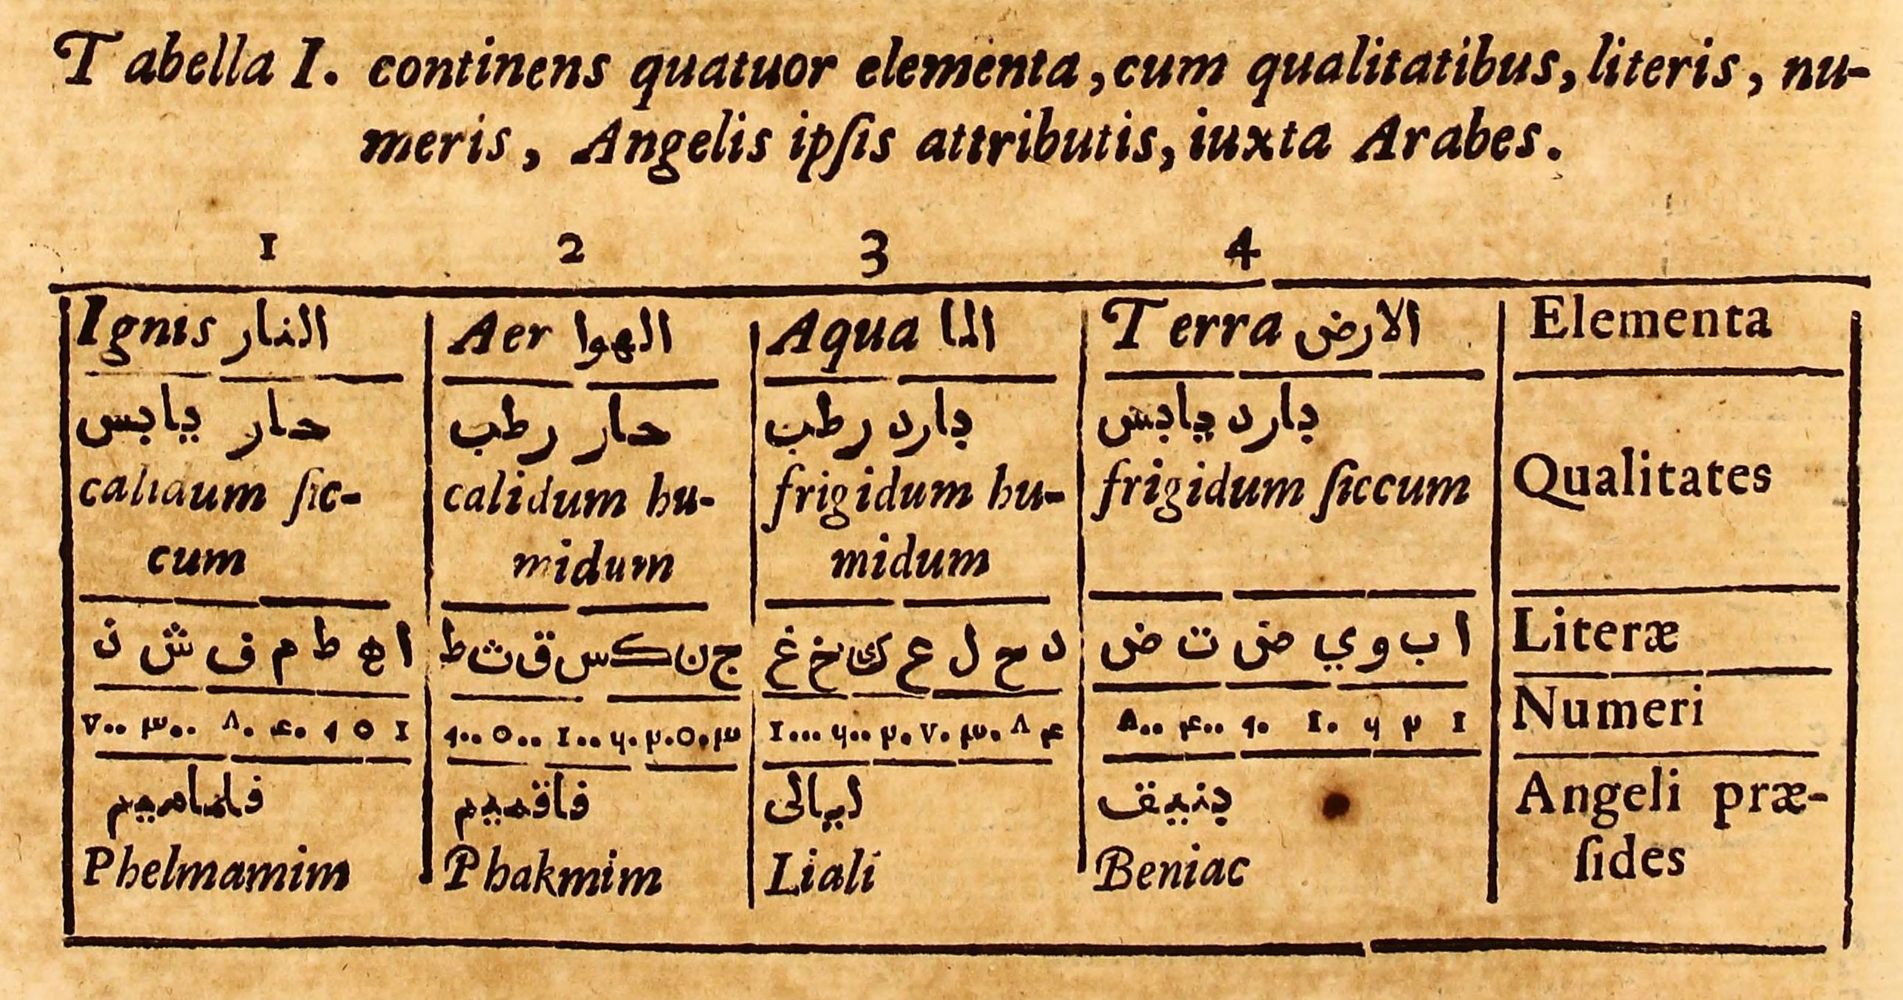 Tabella I. continens quatuor elementa, cum qualitatibus, literis, nu-
meris, Angelis ipſis attributis, iuxta Arabes.
1 2 3 4
Ignis النار Aer الهوا Aqua الما Terra الارض Elementa
حار يابس
calidum ſic-
cum
حار رطب
calidum hu-
midum
بارد رطب
frigidum hu-
midum
بارد يابس
frigidum ſiccum
Qualitates
ا ه ط م ف ش ذ
ج ن ك س ق ث ظ
د ح ل ع خ غ
ا ب و ي ض ت ض
Literæ
Numeri
Phelmamim
فاقميم
Phakmim
ليالى
Liali
بنيق
Beniac
Angeli præ-
ſides